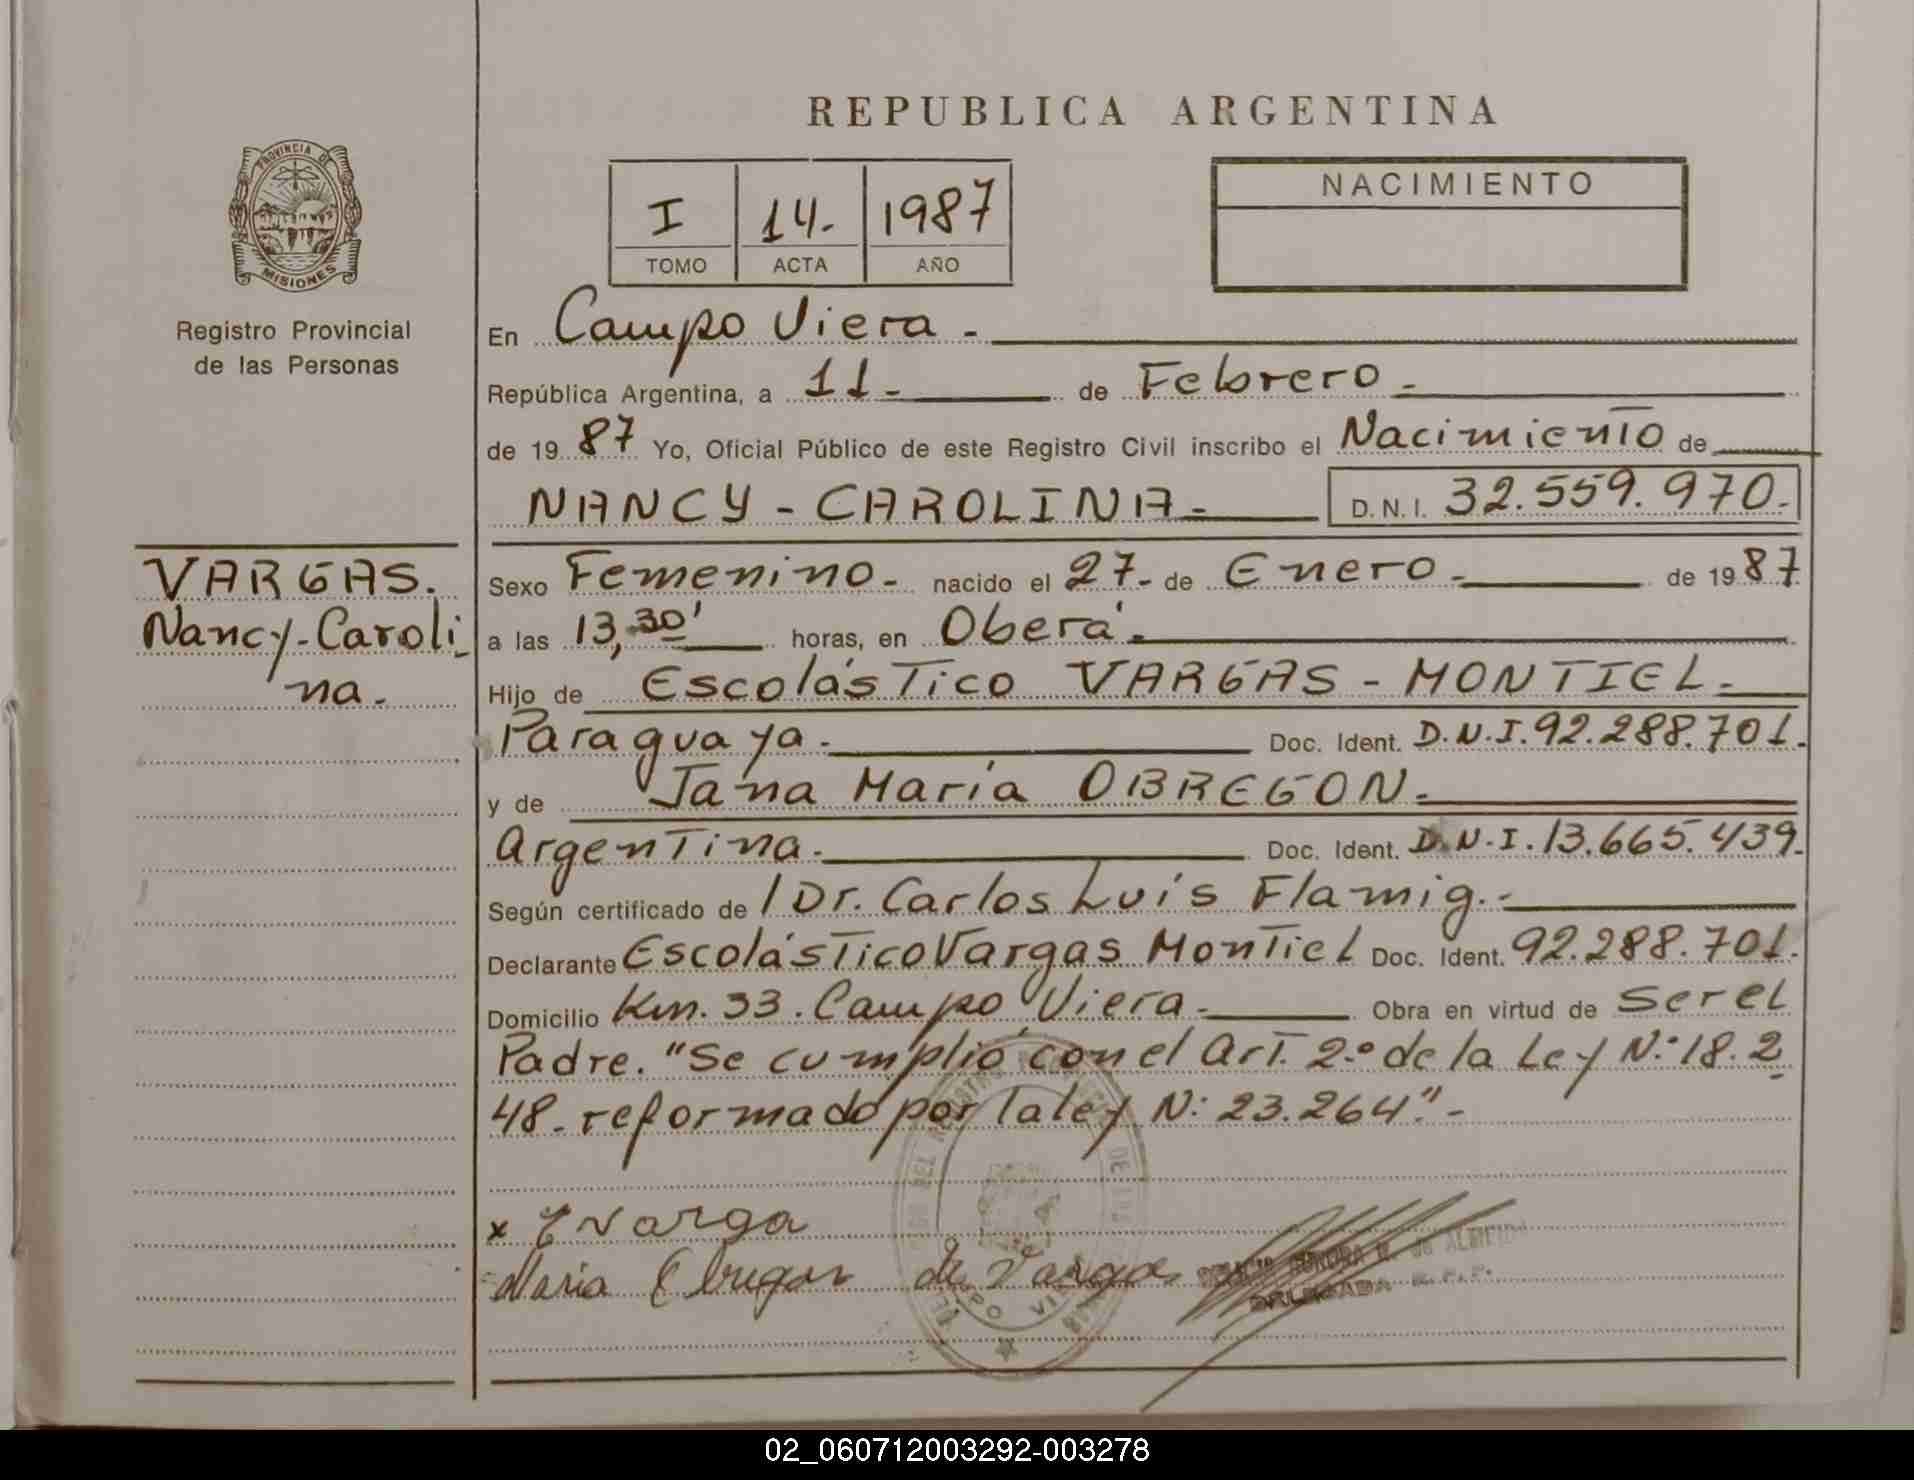 REPUBLICA ARGENTINA
PROVINCIA DE
MISIONES
Registro Provincial
de las Personas
I 14.- 1987
TOMO ACTA AÑO
NACIMIENTO
En Campo Viera -
República Argentina, a 11- de Febrero -
de 19 87 Yo, Oficial Público de este Registro Civil inscribo el Nacimiento de
NANCY - CAROLINA - D.N.I. 32.559.970.-
VARGAS.
Nancy-Caroli_
na.-
Sexo Femenino - nacido el 27- de Enero - de 19 87
a las 13,30' horas, en Oberá.-
Hijo de Escolástico VARGAS - MONTIEL -
Paraguaya - Doc. Ident. D.N.I. 92.288.701.-
y de Jana María OBREGON.-
Argentina.- Doc. Ident. D.N.I. 13.665.439.-
Según certificado de / Dr. Carlos Luis Flamig.-
Declarante Escolástico Vargas Montiel Doc. Ident. 92.288.701.-
Domicilio Km. 33. Campo Viera - Obra en virtud de ser el
Padre. "Se cumplió con el Art. 2.º de la Ley N.º 18.2_
48- reformado por la ley N: 23.264".-
x E Varga
Maria Obregon de Vargas
DELEGADA R.P.P.
02_060712003292-003278